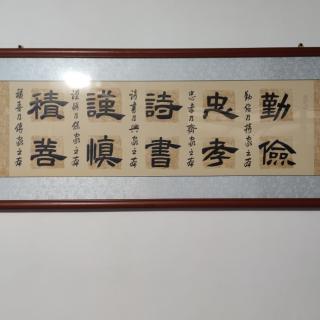 勤儉
勤儉乃持家之本
忠孝
忠孝乃齊家之本
詩書
詩書乃興家之本
謹慎
謹慎乃保家之本
積善
積善乃傳家之本